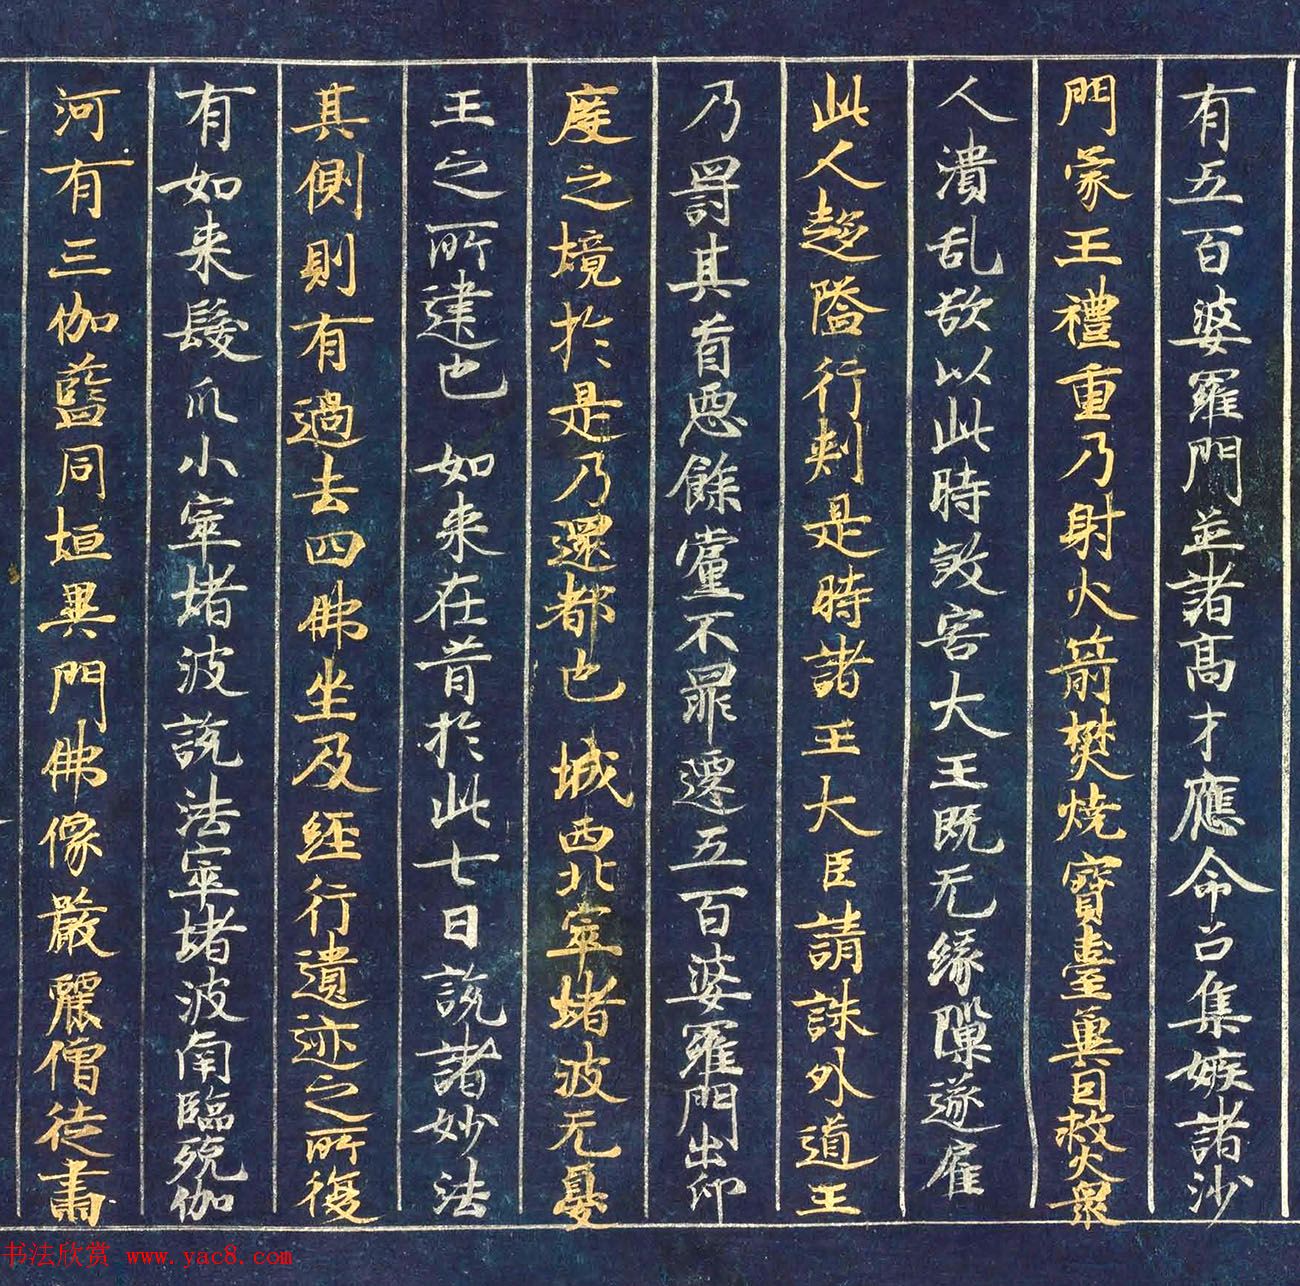 有五百婆羅門並諸髙才應命召集嫉諸沙
門蒙王禮重乃射火箭樊燒寶臺兾因救火衆
人潰乱欲以此時敦害大王既无緣隟遂雇
此人趍隘行刾是時諸王大臣請誅外道王
乃罸其首惡餘黨不罪遷五百婆羅門出印
度之境於是乃還都也 城西北窣堵波无憂
王之所建也 如来在昔於此七日説諸妙法
其側則有過去四佛坐及経行遺迹之所復
有如来髮爪小窣堵波說法窣堵波南臨殑伽
河有三伽藍同垣異門佛像嚴麗僧徒肅
书法欣赏 www.yac8.com